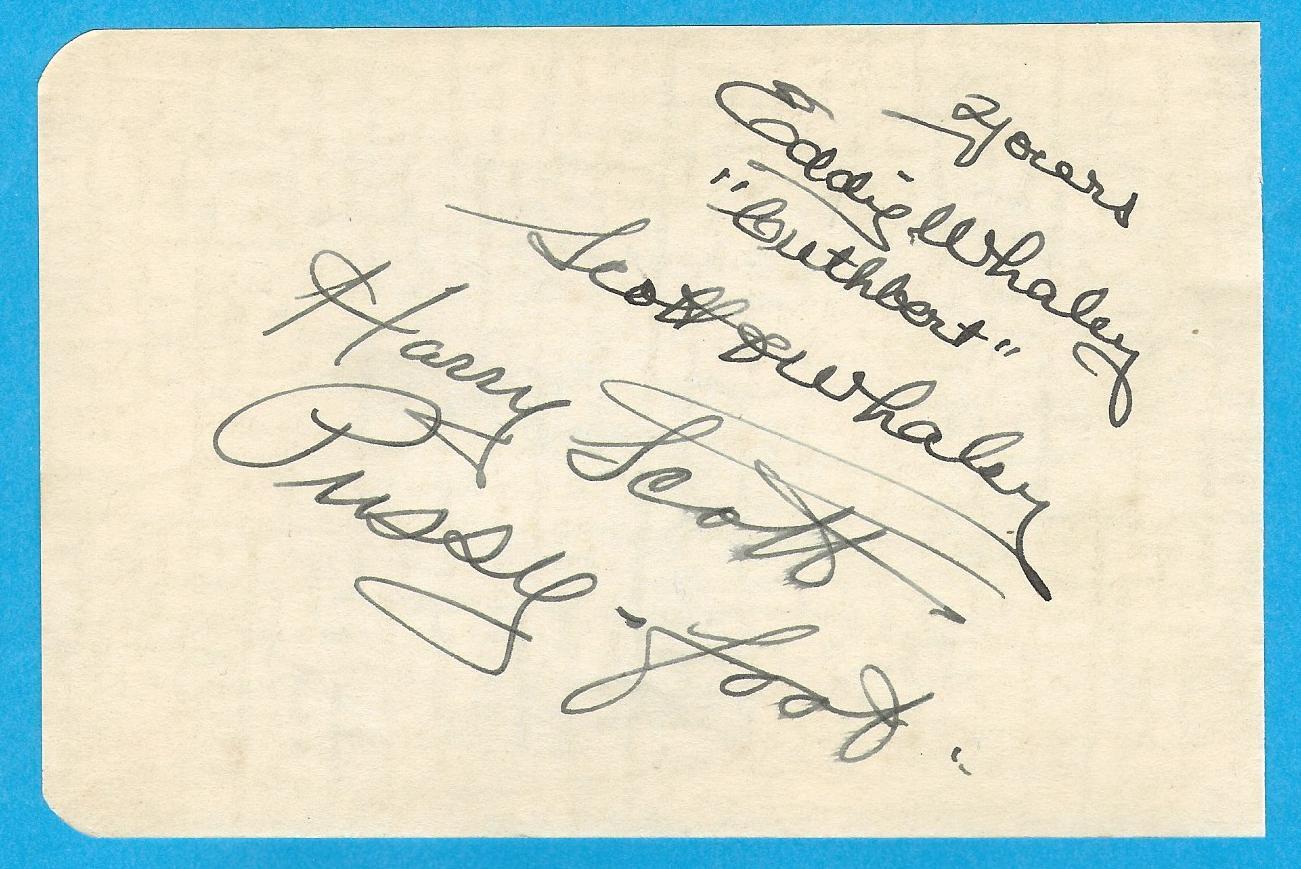 Yours
Eddie Whaley
"Cuthbert"
Scott & Whaley
Harry Scott
Pussy-Foot."